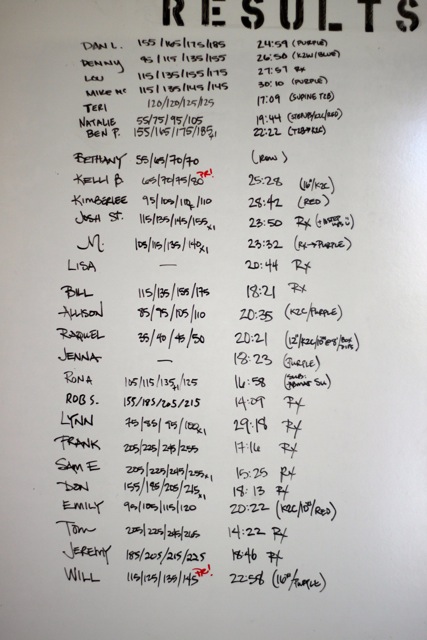 RESULTS
DAN L. 155/165/175/185 24:59 (PURPLE)
PENNY 95/115/135/155 26:50 (K2W/BLUE)
LOU 115/135/155/175 27:57 Rx
MIKE MC 115/135/145/145 30:10 (PURPLE)
TERI 120/120/125/125 17:09 (SUPINE T2B)
NATALIE 55/75/95/105 19:44
BEN P. 155/165/175/185x1 22:22 (T2B→K2C)
BETHANY 55/65/70/70 (ROW)
KELLI B. 65/70/75/80 PR! 25:28 (16"/K2C)
KIMBERLEE 95/105/110 28:42 (RED)
JOSH ST. 115/135/145/155x1 23:50 Rx
M. 105/115/135/140x1 23:32 (Rx→PURPLE)
LISA — 20:44 Rx
BILL 115/135/155/175 18:21 Rx
ALLISON 85/95/105/110 20:35 (K2C/PURPLE)
RAQUEL 35/40/45/50 20:21
JENNA — 18:23 (PURPLE)
RONA 105/115/135x1/125 16:58
ROB S. 155/185/205/215 14:09 Rx
LYNN 75/85/95/100x1 29:18 Rx
FRANK 205/225/245/255 17:16 Rx
SAM E 205/225/245/255x1 15:25 Rx
DON 155/185/205/215x1 18:13 Rx
EMILY 95/105/115/120 20:22 (K2C/10"/RED)
TOM 205/225/245/265 14:22 Rx
JEREMY 185/205/215/225 18:46 Rx
WILL 115/125/135/145 PR! 22:58 (16"/PURPLE)